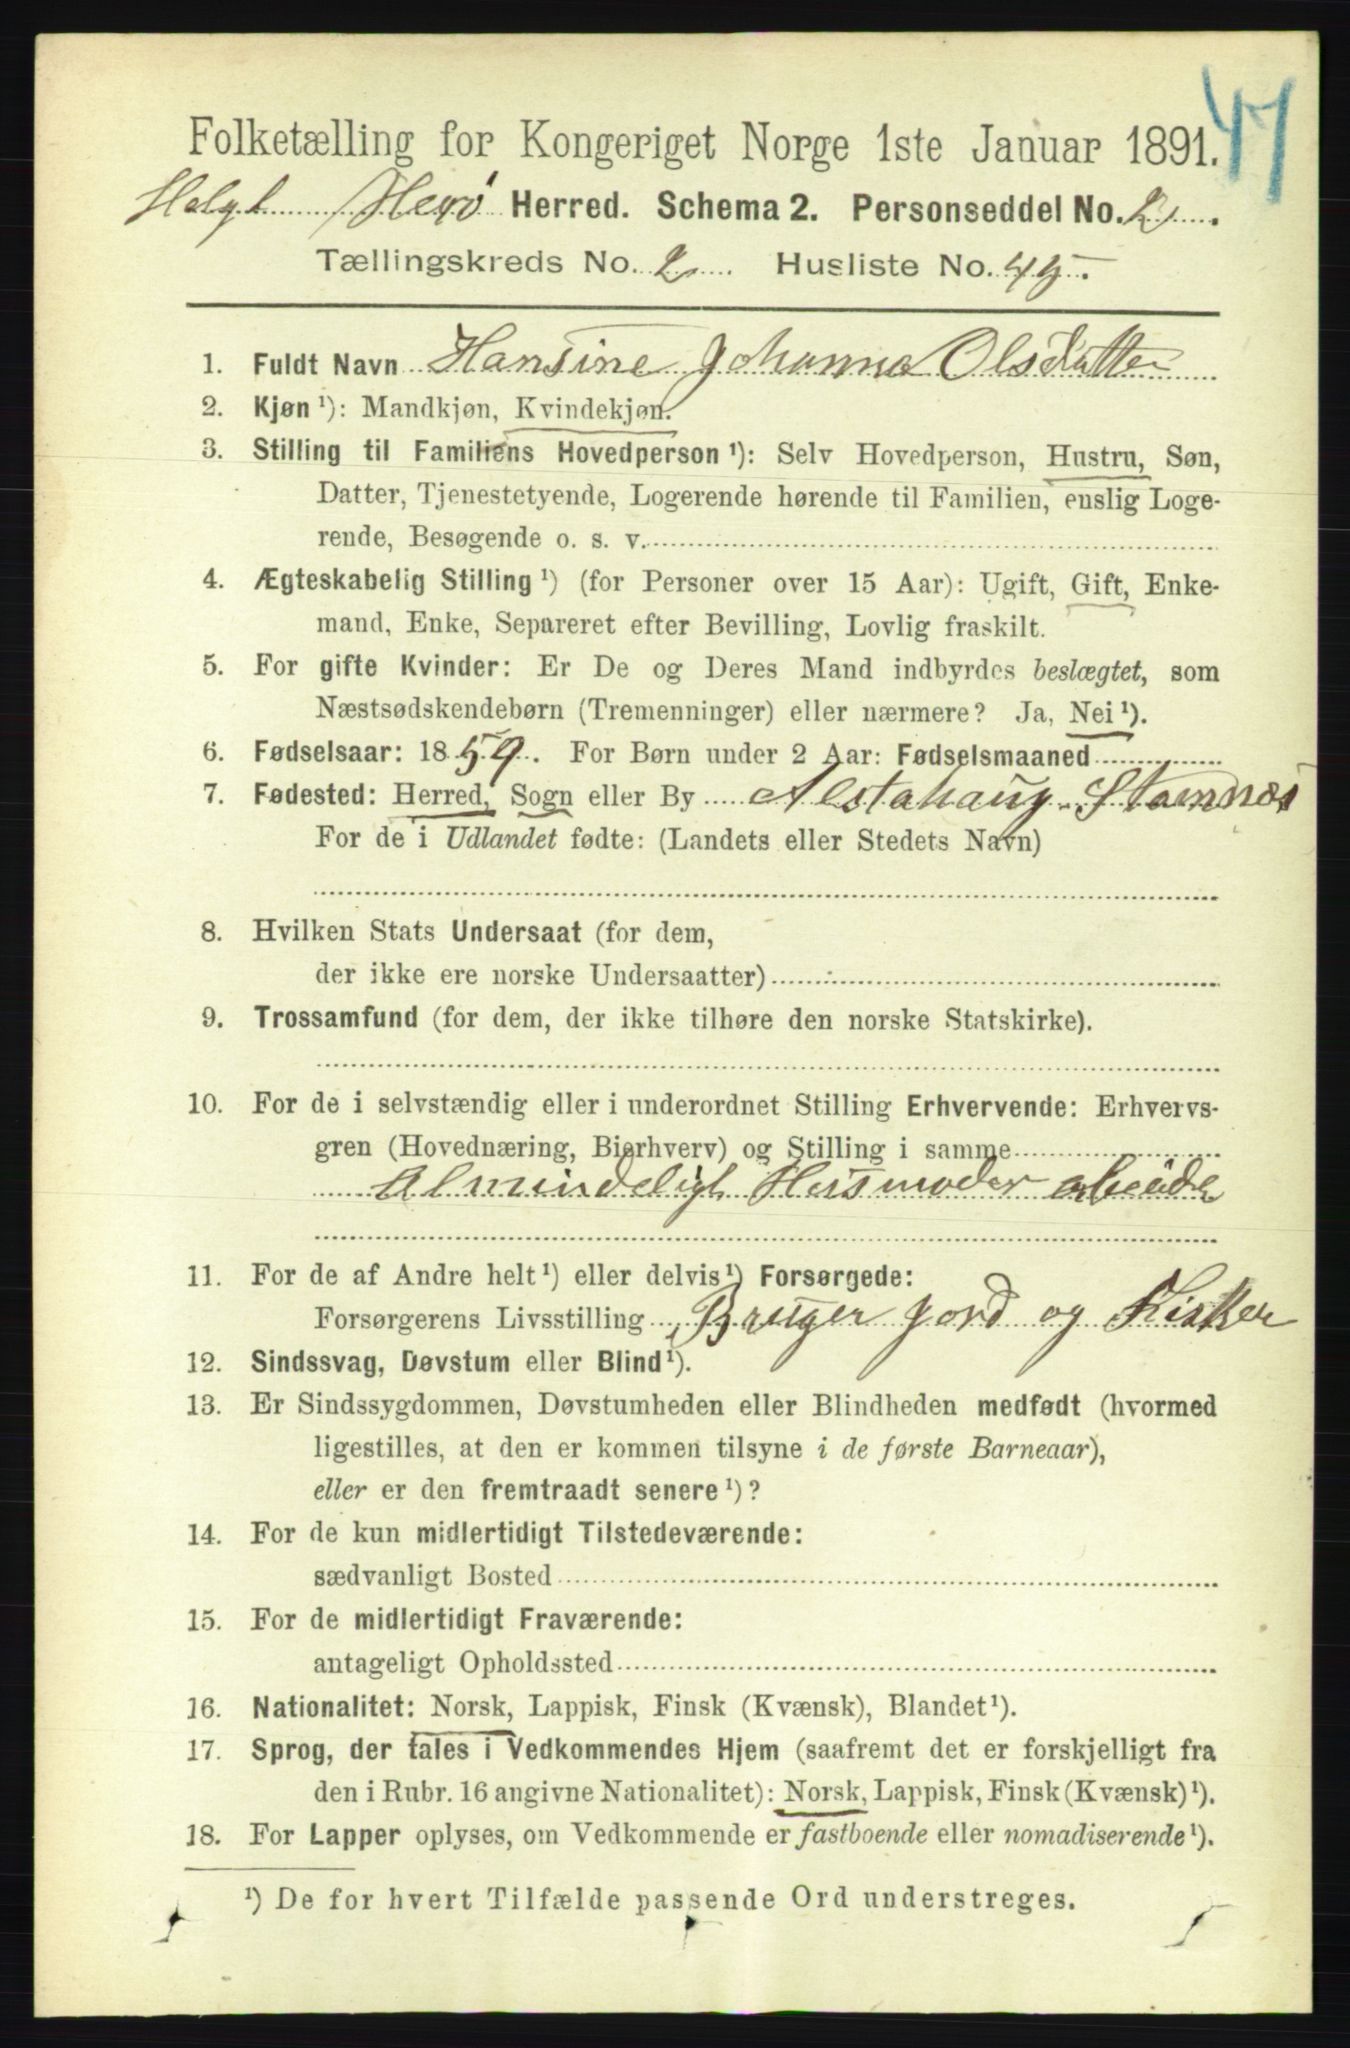 47
Folketælling for Kongeriget Norge 1ste Januar 1891.
Helgl. Herø Herred. Schema 2. Personseddel No. 2.
Tællingskreds No. 2 Husliste No. 45.
1. Fuldt Navn Hansine Johanna Olsdatter
2. Kjøn ¹): Mandkjøn, Kvindekjøn.
3. Stilling til Familiens Hovedperson ¹): Selv Hovedperson, Hustru, Søn,
Datter, Tjenestetyende, Logerende hørende til Familien, enslig Loge-
rende, Besøgende o. s. v.
4. Ægteskabelig Stilling ¹) (for Personer over 15 Aar): Ugift, Gift, Enke-
mand, Enke, Separeret efter Bevilling, Lovlig fraskilt.
5. For gifte Kvinder: Er De og Deres Mand indbyrdes beslægtet, som
Næstsødskendebørn (Tremenninger) eller nærmere? Ja, Nei ¹).
6. Fødselsaar: 1859. For Børn under 2 Aar: Fødselsmaaned
7. Fødested: Herred, Sogn eller By Alstahaug. Stamnæs
For de i Udlandet fødte: (Landets eller Stedets Navn)
8. Hvilken Stats Undersaat (for dem,
der ikke ere norske Undersaatter)
9. Trossamfund (for dem, der ikke tilhøre den norske Statskirke).
10. For de i selvstændig eller i underordnet Stilling Erhvervende: Erhvervs-
gren (Hovednæring, Bierhverv) og Stilling i samme
Almindeligt Husmoder abeide
11. For de af Andre helt ¹) eller delvis ¹) Forsørgede:
Forsørgerens Livsstilling Bruger jord og Fisker
12. Sindssvag, Døvstum eller Blind ¹).
13. Er Sindssygdommen, Døvstumheden eller Blindheden medfødt (hvormed
ligestilles, at den er kommen tilsyne i de første Barneaar),
eller er den fremtraadt senere ¹)?
14. For de kun midlertidigt Tilstedeværende:
sædvanligt Bosted
15. For de midlertidigt Fraværende:
antageligt Opholdssted
16. Nationalitet: Norsk, Lappisk, Finsk (Kvænsk), Blandet ¹).
17. Sprog, der tales i Vedkommendes Hjem (saafremt det er forskjelligt fra
den i Rubr. 16 angivne Nationalitet): Norsk, Lappisk, Finsk (Kvænsk) ¹).
18. For Lapper oplyses, om Vedkommende er fastboende eller nomadiserende ¹).
¹) De for hvert Tilfælde passende Ord understreges.